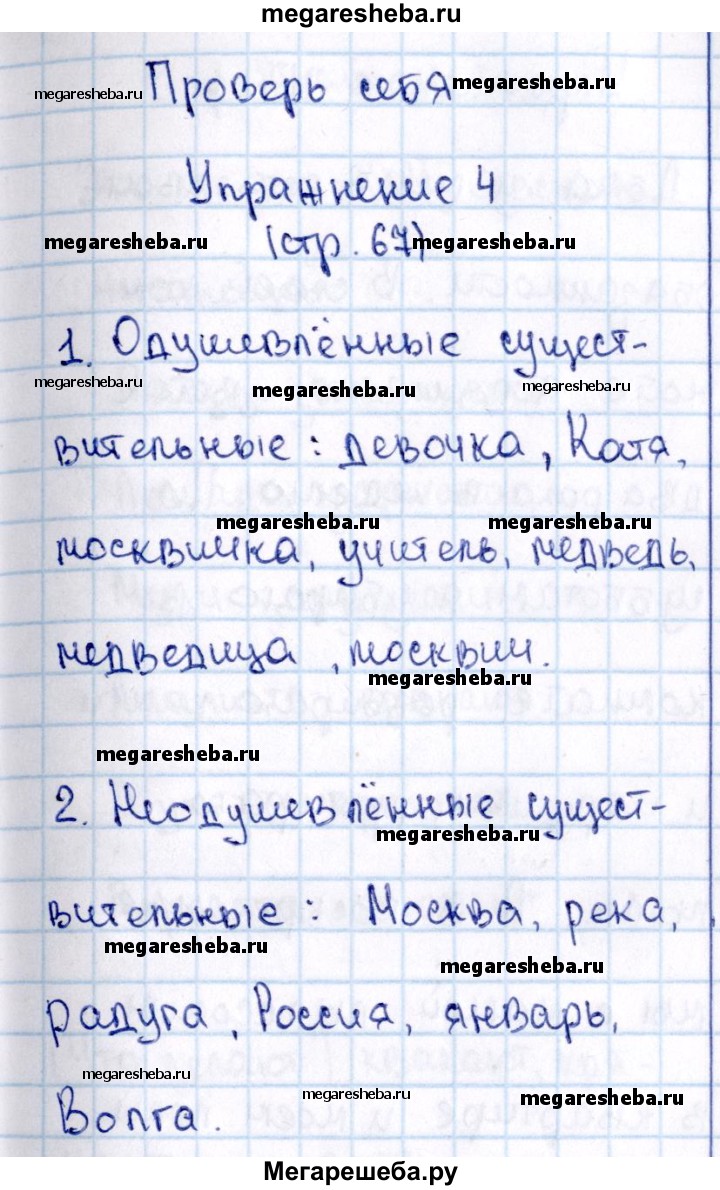 megaresheba.ru
Проверь себя
megaresheba.ru megaresheba.ru
Упражнение 4
(стр. 67)
megaresheba.ru megaresheba.ru
1. Одушевлённые сущест-
megaresheba.ru megaresheba.ru megaresheba.ru
вительные: девочка, Катя,
megaresheba.ru megaresheba.ru
москвичка, учитель, медведь,
медведица, москвич.
megaresheba.ru
megaresheba.ru
2. Неодушевлённые сущест-
megaresheba.ru
вительные: Москва, река,
megaresheba.ru
megaresheba.ru
радуга, Россия, январь,
megaresheba.ru megaresheba.ru megaresheba.ru
Волга.
Мегарешеба.ру